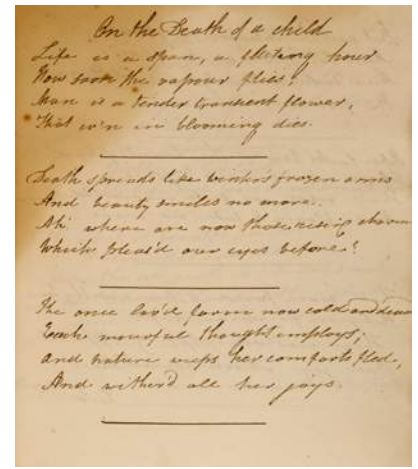 On the Death of a child
Life is a span, a fleeting hour
How soon the vapour flies!
Man is a tender transient flower,
That e'en in blooming dies.
Death spreads like winter's frozen arms
And beauty smiles no more.
Ah! where are now those rising charms
Which pleas'd our eyes before?
The once lov'd form now cold and dead
Each mournful thought employs;
And nature weeps her comforts fled,
And wither'd all her joys.